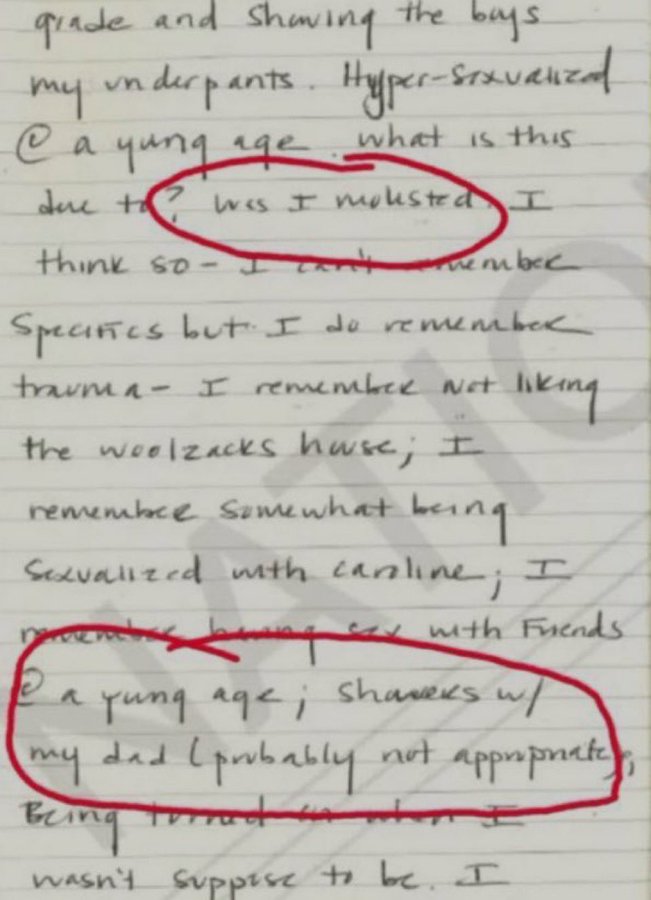 grade and showing the boys
my underpants. Hyper-sexualized
@ a yung age. what is this
due to? was I molested. I
think so - I can't remember
specifics but I do remember
trauma - I remember not liking
the woolzacks house; I
remember somewhat being
sexualized with caroline; I
remember having sex with friends
@ a yung age; showers w/
my dad (probably not appropriate);
Being turned on when I
wasn't suppose to be. I
NATIO